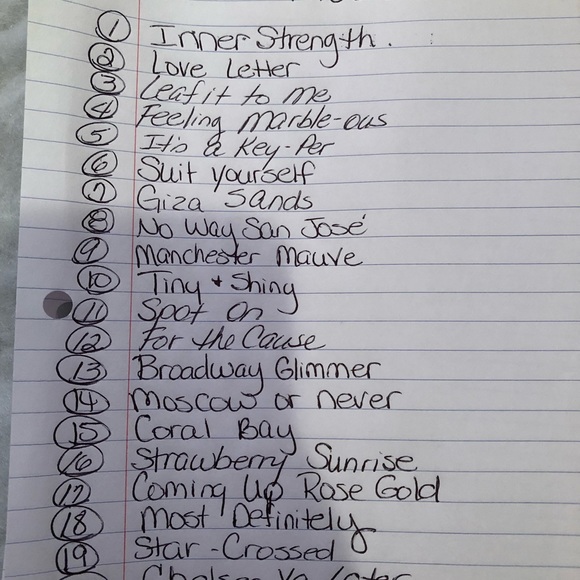 1 Inner Strength.
2 Love Letter
3 Leaf it to me
4 Feeling Marble-ous
5 It's a Key-Per
6 Suit yourself
7 Giza Sands
8 No Way San José
9 Manchester Mauve
10 Tiny + Shiny
11 Spot On
12 For the Cause
13 Broadway Glimmer
14 Moscow or never
15 Coral Bay
16 Strawberry Sunrise
17 Coming Up Rose Gold
18 Most Definitely
19 Star-Crossed
Chelsea Ya Later